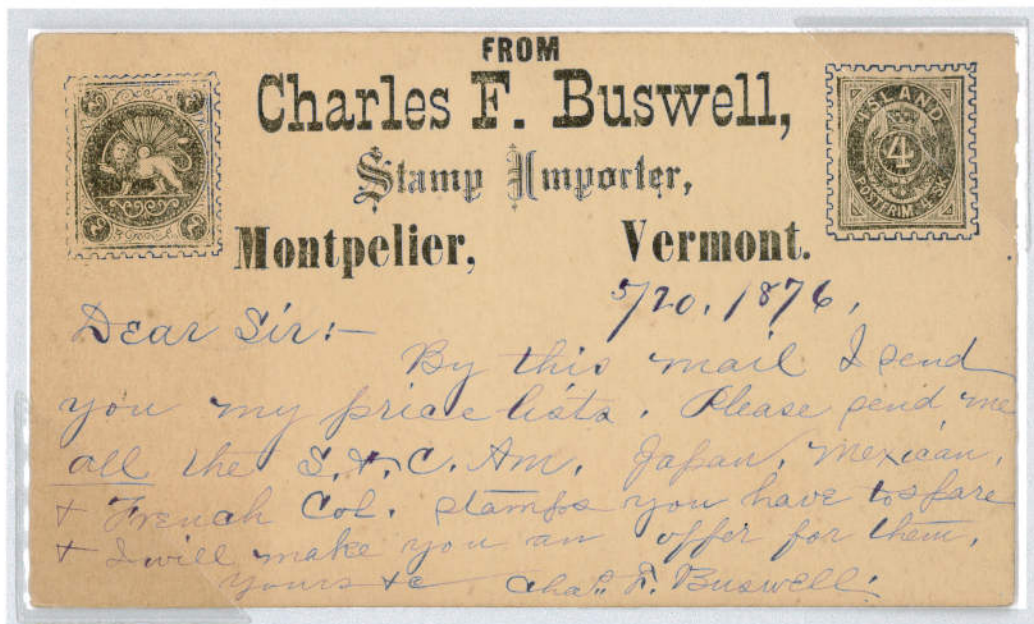 FROM
Charles F. Buswell,
Stamp Importer,
Montpelier, Vermont.
ISLAND
4
POSTFRIM. 4 SK.
5/20, 1876,
Dear Sir:—
By this mail I send
you my price lists. Please send me
all the S. & C. Am. Japan, Mexican,
& French Col. stamps you have to spare
& I will make you an offer for them,
Yours &c Chas. F. Buswell.